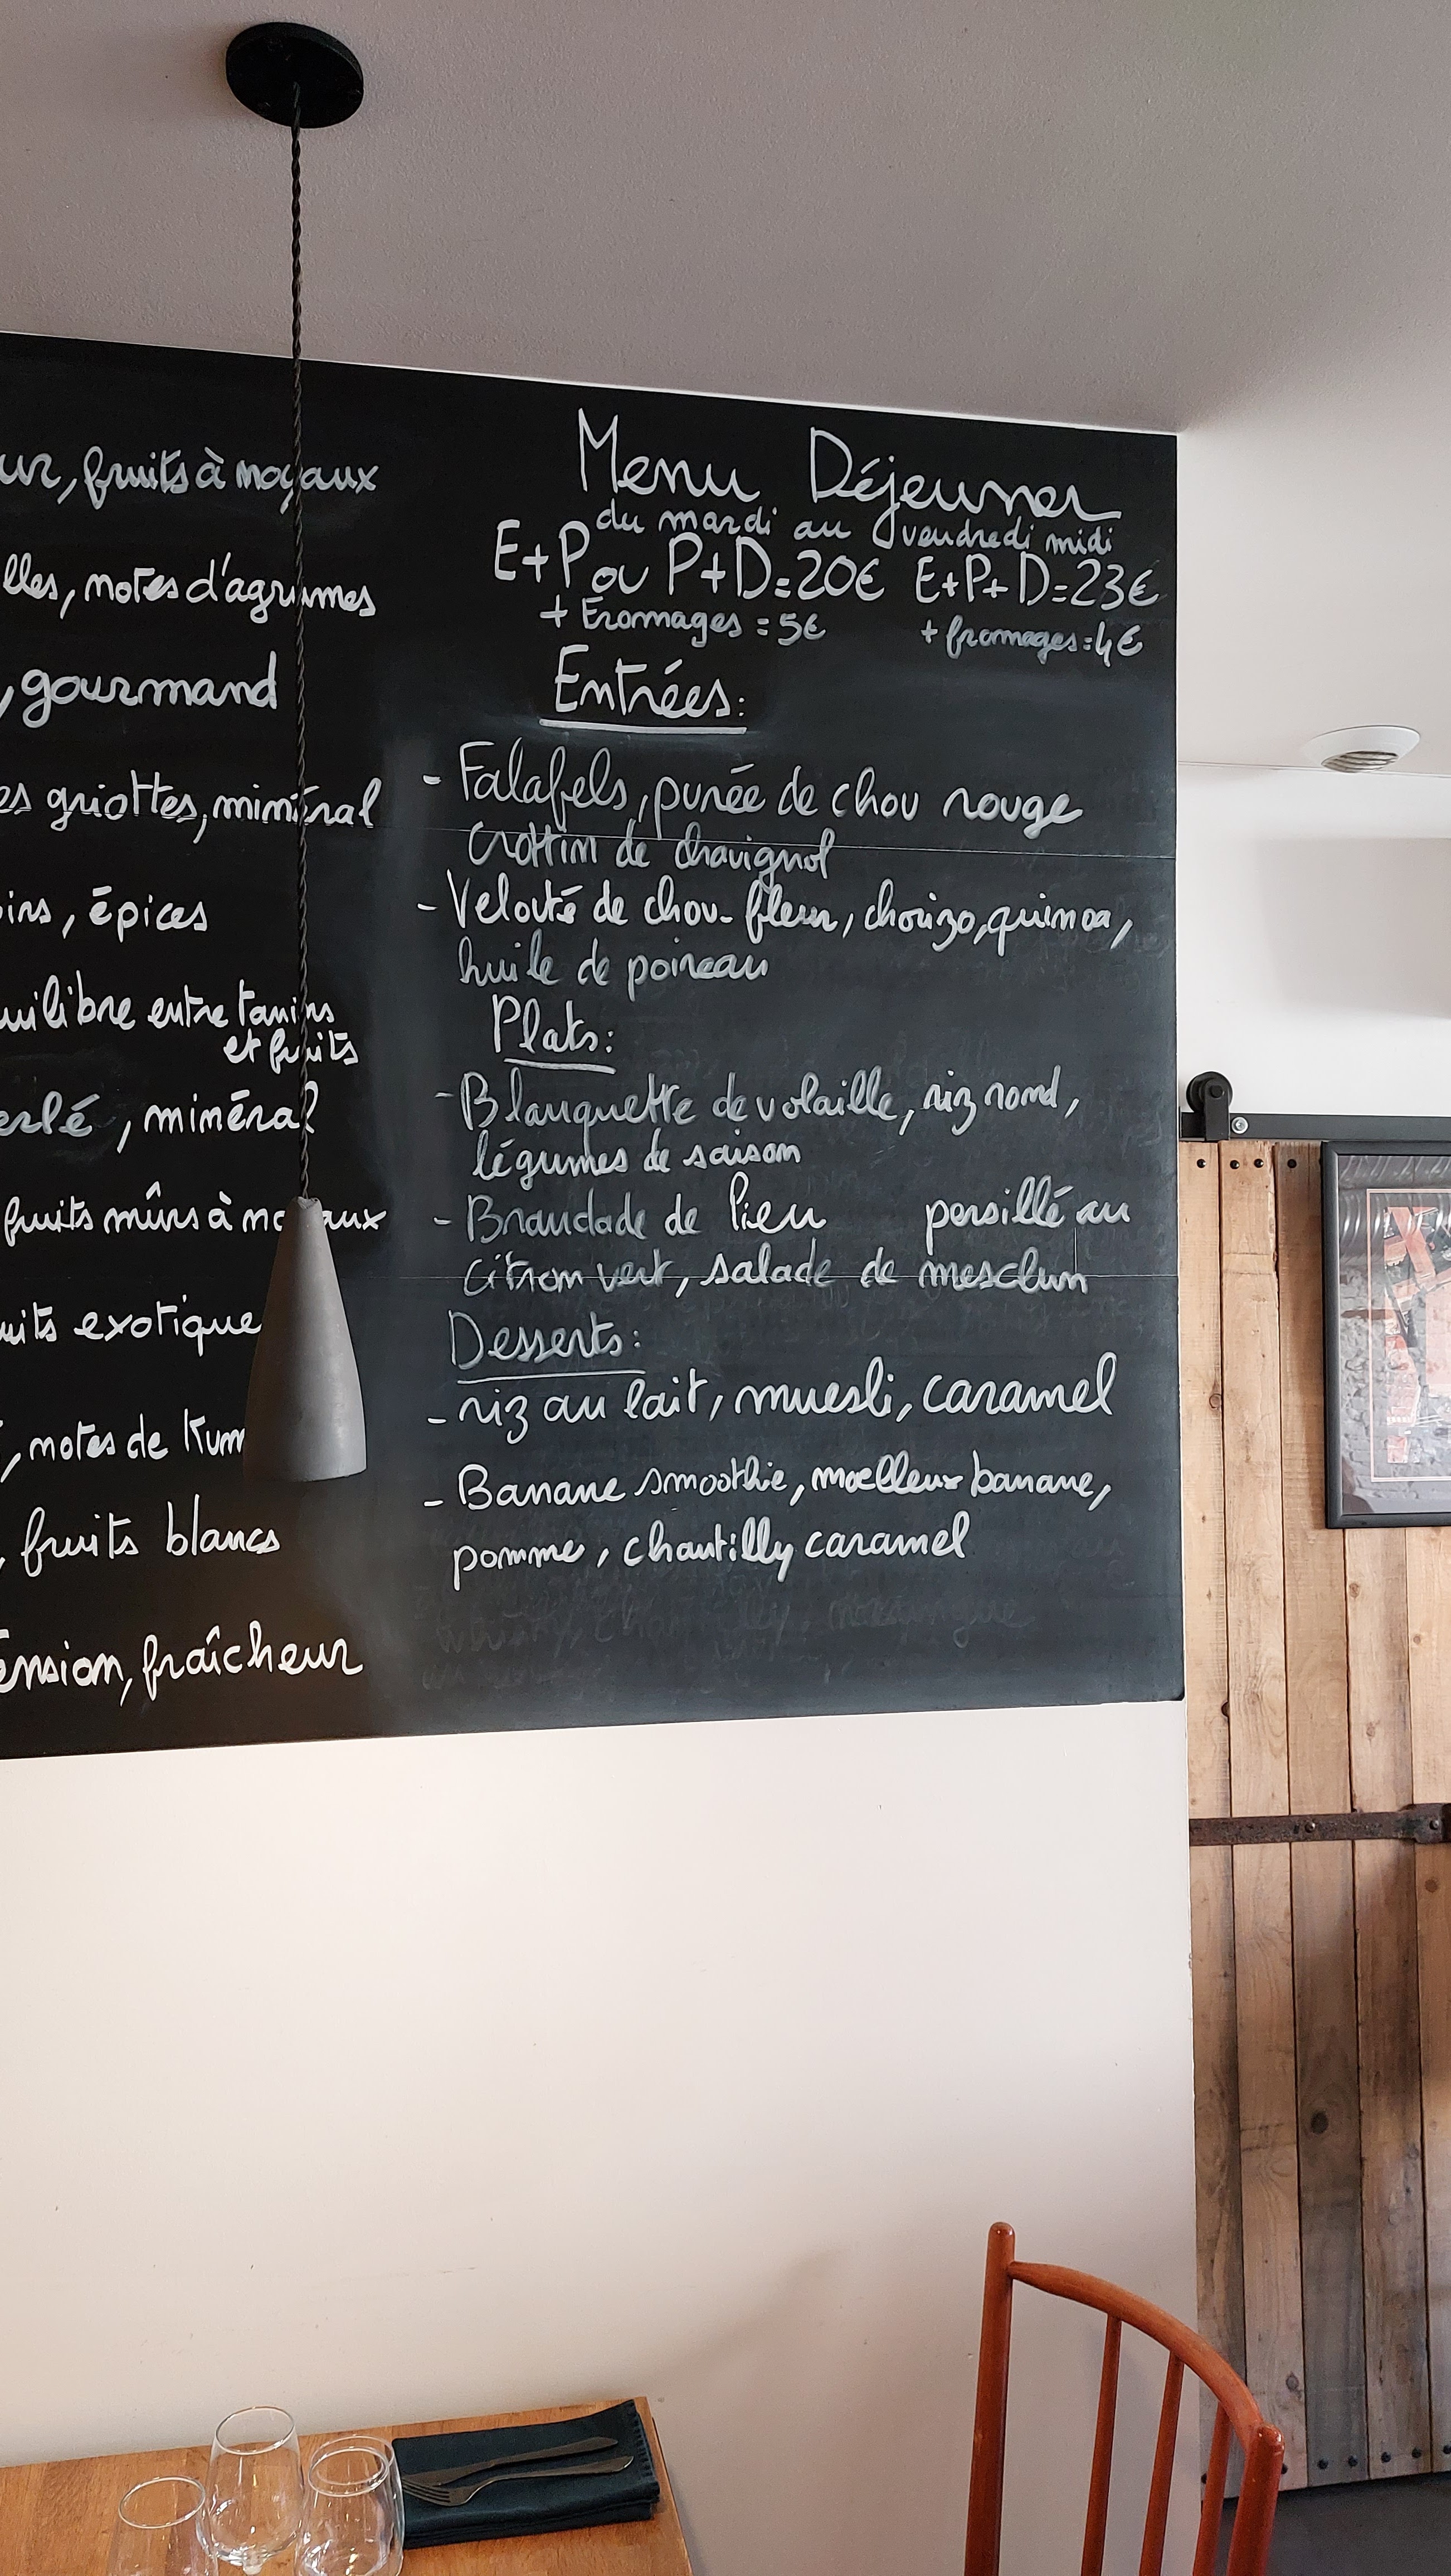 ur, fruits à noyaux
lles, notes d'agrumes
, gourmand
es griottes, minéral
oirs, épices
uilibre entre tanins
et fruits
erlé, minéral
fruits mûrs à noyaux
uits exotique
, notes de Kum
, fruits blancs
ension, fraîcheur
Menu Déjeuner
du mardi au vendredi midi
E+P ou P+D=20€ E+P+D=23€
+ Fromages = 5€ + fromages=4€
Entrées:
- Falafels, purée de chou rouge
crottin de chavignol
- Velouté de chou-fleur, chorizo, quinoa,
huile de poireau
Plats:
- Blanquette de volaille, riz rond,
légumes de saison
- Brandade de lieu persillé au
citron vert, salade de mesclun
Desserts:
- riz au lait, muesli, caramel
- Banane smoothie, moelleux banane,
pomme, chantilly caramel